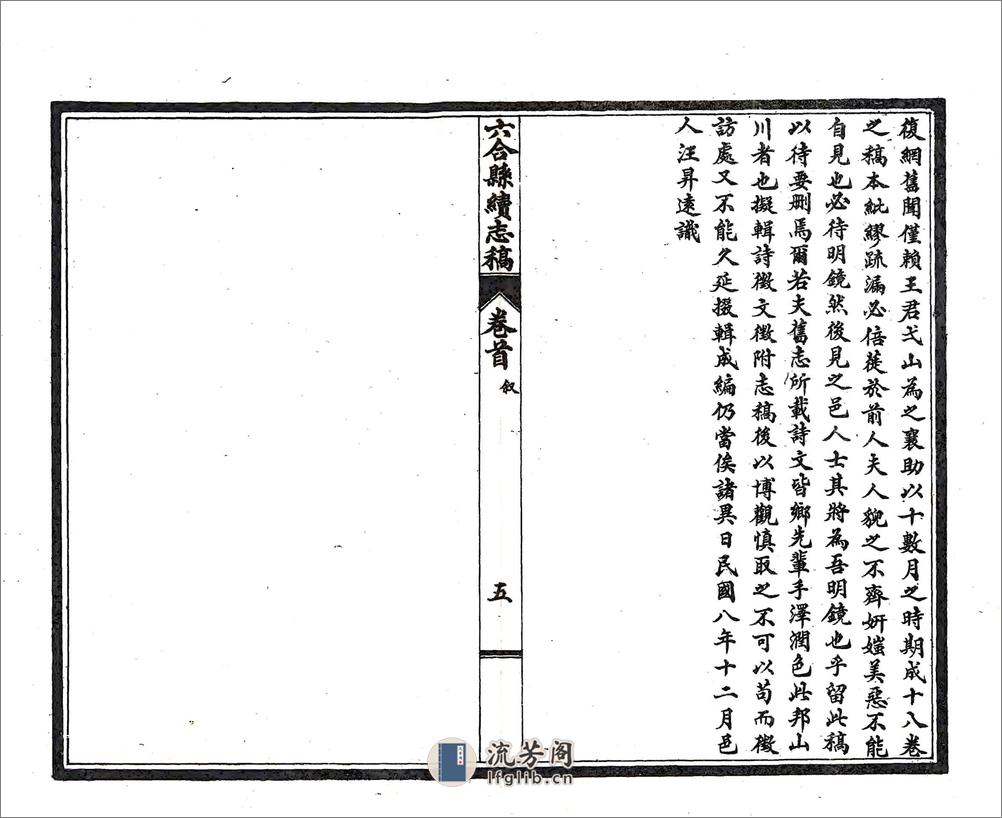 復網舊聞僅賴王君弌山為之襄助以十數月之時期成十八卷
之稿本紕繆疏漏必倍蓰於前人夫人貌之不齊妍媸美惡不能
自見也必待明鏡然後見之邑人士其將為吾明鏡也乎留此稿
以待要刪焉爾若夫舊志所載詩文皆鄉先輩手澤潤色此邦山
川者也擬輯詩徵文徵附志稿後以博觀慎取之不可以苟而徵
訪處又不能久延掇輯成編仍當俟諸異日民國八年十二月邑
人汪昇遠識
六合縣續志稿
卷首
叙
五
流芳阁
lfglib.cn